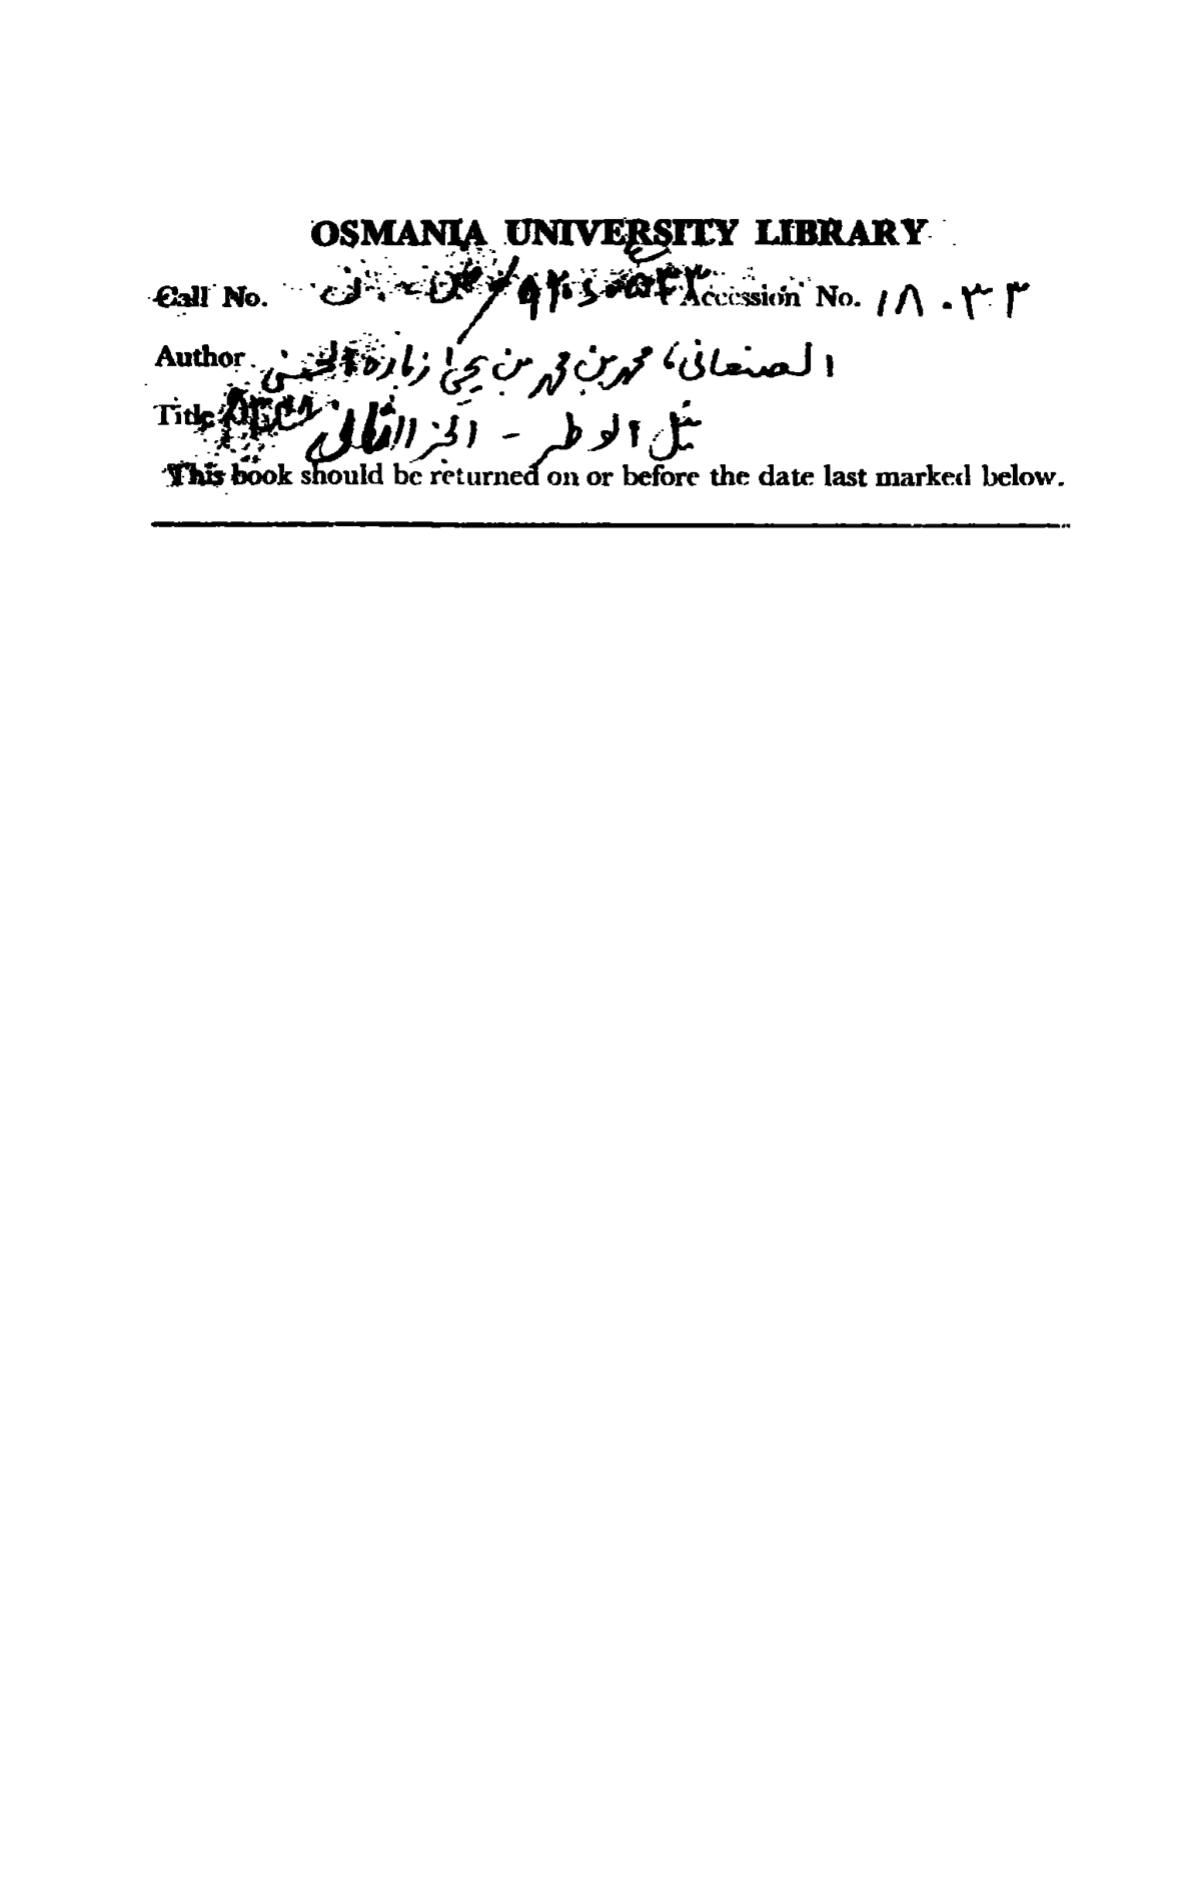 OSMANIA UNIVERSITY LIBRARY
Call No. Accession No. ۱۸۰۳۳
Author الصنعانی، محمد بن محمد بن یحیٰ زبارہ الحسنی
Title نیل الوطر - الجز الثانی
This book should be returned on or before the date last marked below.